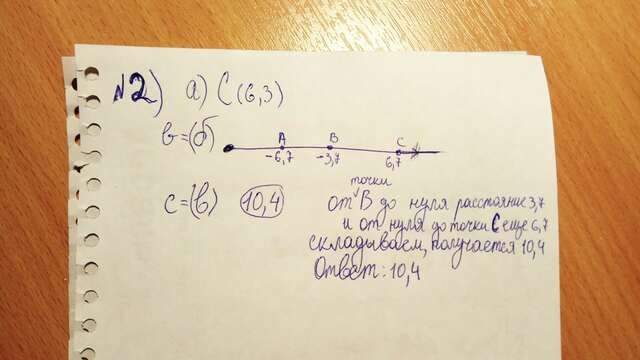 №2) а) С (6,3)
в=(б)
А В С
-6,7 -3,7 6,7
с=(в) 10,4
точки
от В до нуля расстояние 3,7
и от нуля до точки С еще 6,7
складываем, получается 10,4
Ответ: 10,4